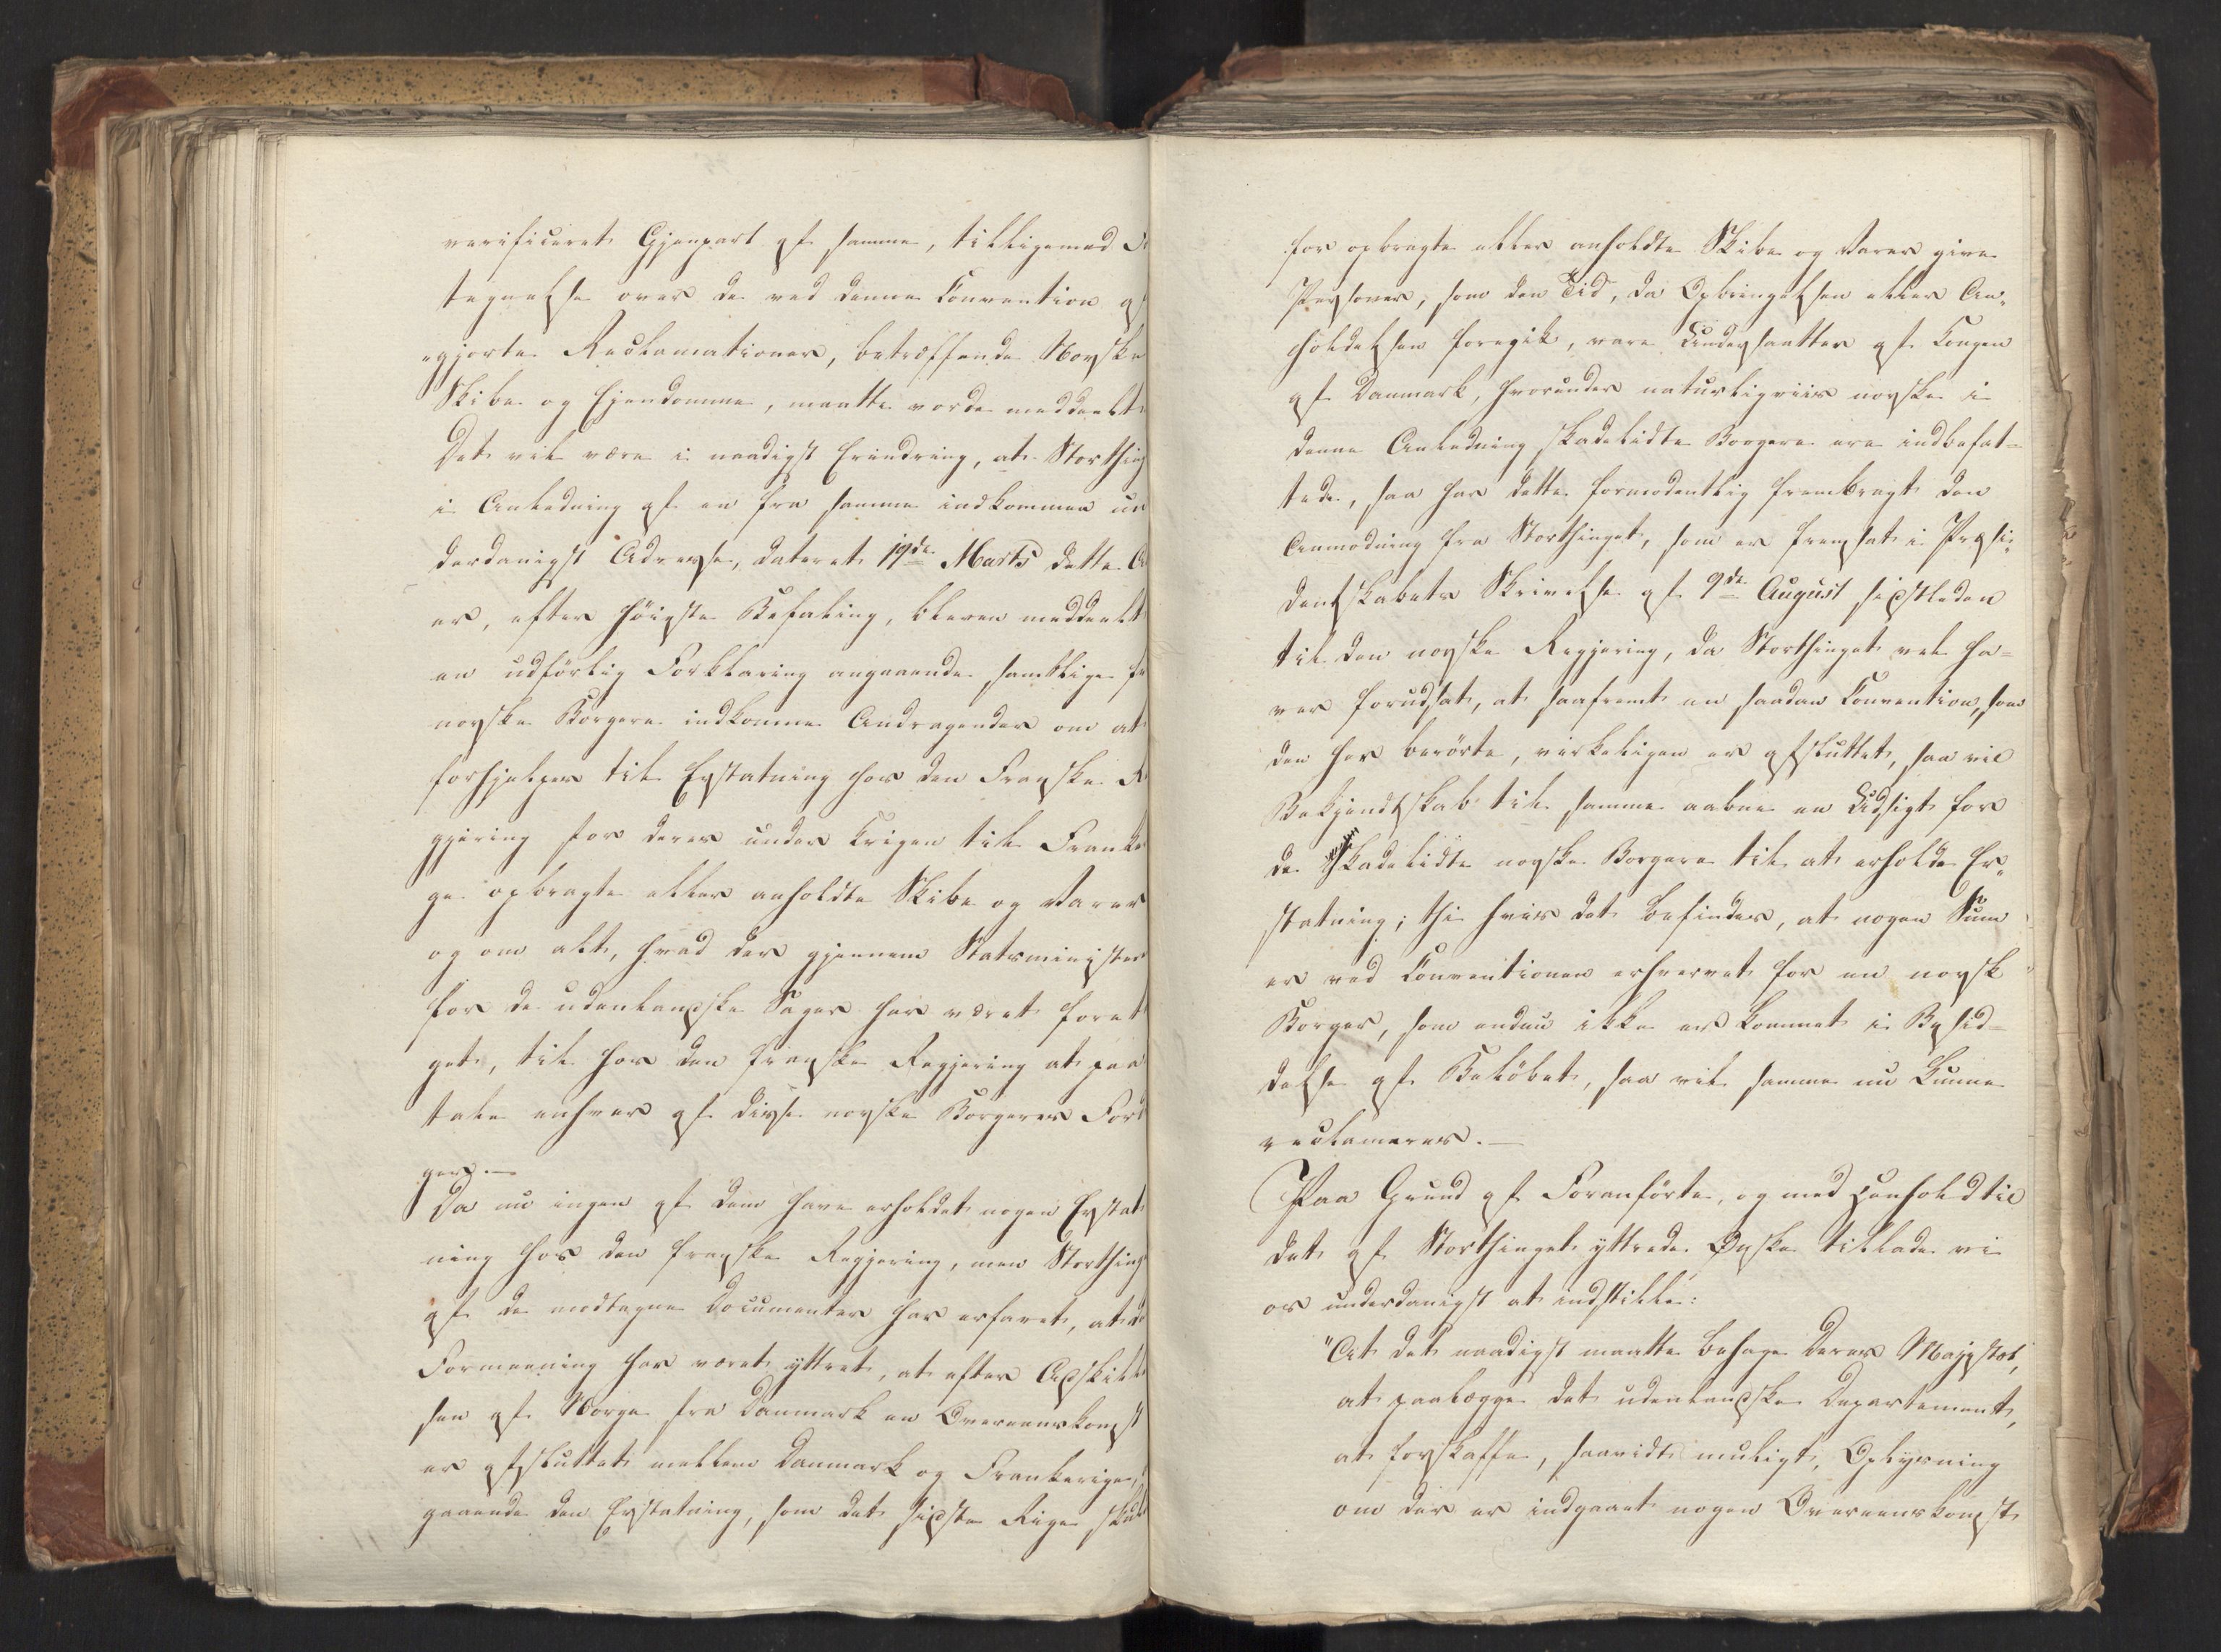 verificeret Gjenpart af samme, tilligemed
tegnelse over de ved denne Convention af
„gjorte Reclamationer, betræffende Norske
Skibe og Ejendomme, maatte vorde meddeelt
Det vil være i naadigst Erindring, at Storthing
i Anledning af en fra samme indkommen un
derdanigst Adresse, dateret 19de Marts dette A
er, efter höieste Befaling, bleven meddeelt
en udförlig Forklaring angaaende samtlige fr
norske Borgere indkomne Andragender om at
forhjelpes til Erstatning hos den Franske R
gjering for deres under Krigen til Frankr
ge opbragte eller anholdte Skibe og Varer
og om alt, hvad der gjennem Statsminister
for de udenlandske Sager har været foreta
get, til hos den franske Regjering at paa
tale enhver af disse norske Borgeres Ford
ger.—
Da nu ingen af dem have erholdet nogen Erstat
ning hos den franske Regjering, men Storthing
af de modtagne Documenter har erfaret, at d
Formeening har været yttret, at efter Adskillel
sen af Norge fra Danmark en Overeenskomst
er afsluttet mellem Danmark og Frankerige,
gaaende den Erstatning, som det sidste Rige skul
for opbragte eller anholdte Skibe og Varer give
Personer, som den Tid, da Opbringelsen eller An„
holdelsen foregik, vare Undersaatter af Kongen
af Danmark, hvorunder naturligviis norske i
denne Anledning skadelidte Borgere ere indbefat=
tede, saa har dette formodentlig frembragt den
Anmodning fra Storthinget, som er fremsat i Præsi„
dentskabets Skrivelse af 9de August sidstleden
til den norske Regjering, da Storthinget vel ha=
ver forudsat, at saafremt en saadan Convention, som
den her berörte, virkeligen er afsluttet, saa vil
Bekjendtskab til samme aabne en Udsigt for
de skadelidte norske Borgere til at erholde Er„
statning; thi hvis det befindes, at nogen Sum
er ved Conventionen erhvervet for en norsk
Borger, som endnu ikke er kommet i Besid=
delse af Belöbet, saa vil samme nu kunne
reclameres.—
Paa Grund af Foranförte, og med Henhold til
det af Storthinget yttrede Önske tillade vi
os underdanigst at indstille:
"At det naadigst maatte behage Deres Majestæt,
at paalægge det udenlandske Departement,
at forskaffe, saavidt muligt, Oplysning
om der er indgaaet nogen Overeenskomst